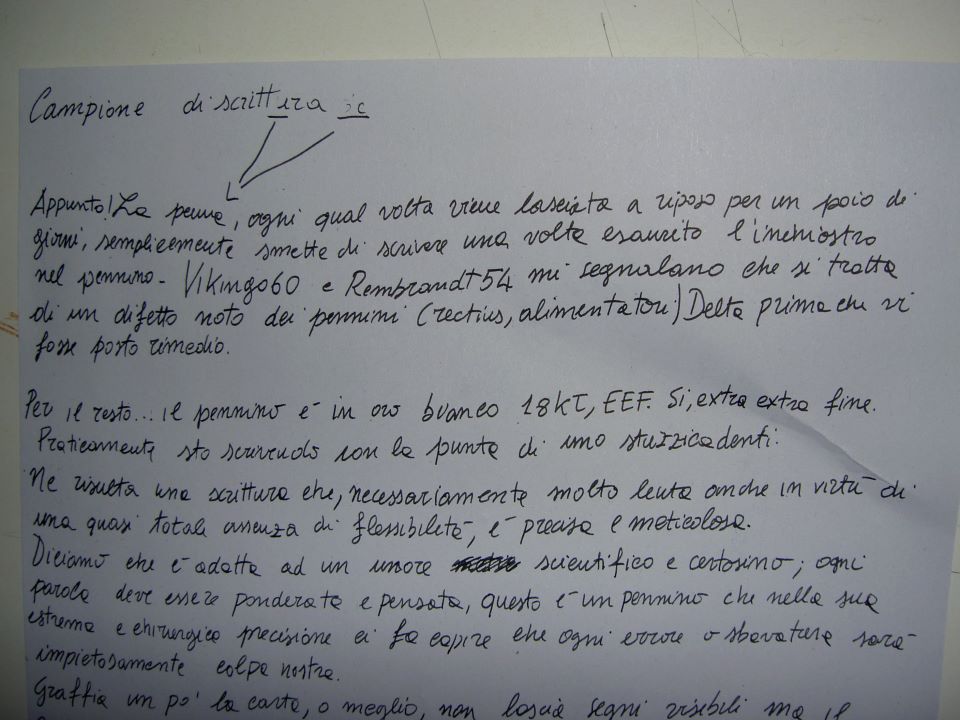 Campione di scrittura ic
Appunto! La penna, ogni qual volta viene lasciata a riposo per un paio di
giorni, semplicemente smette di scrivere una volta esaurito l'inchiostro
nel pennino - Vikingo60 e Rembrandt54 mi segnalano che si tratta
di un difetto noto dei pennini (rectius, alimentatori) Delta prima che vi
fosse posto rimedio.
Per il resto... il pennino è in oro bianco 18KT, EEF. Si, extra extra fine.
Praticamente sto scrivendo con la punta di uno stuzzicadenti.
Ne risulta una scrittura che, necessariamente molto lenta anche in virtù di
una quasi totale assenza di flessibilità, è precisa e meticolosa.
Diciamo che è adatta ad un umore scientifico e certosino; ogni
parola deve essere ponderata e pensata, questo è un pennino che nella sua
estrema e chirurgica precisione ci fa capire che ogni errore o sbavatura sarà
impietosamente colpa nostra.
Graffia un po' la carta, o meglio, non lascia segni visibili ma il